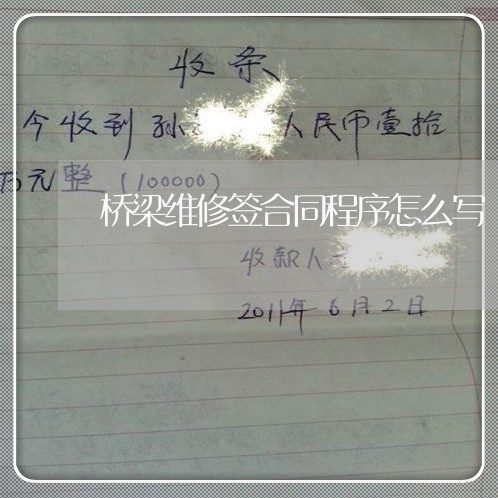 收条
今收到孙 人民币壹拾
万元整(100000)
桥梁维修签合同程序怎么写
收款人
2011年6月2日